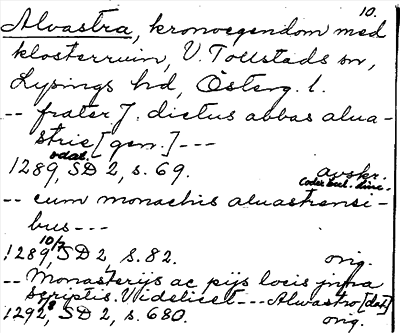 10.
Alvastra, kronoegendom med
klosterruin, V. Tollstads sn,
Lysings hd, Österg. l.
-- frater J. dictus abbas alua-
strie [gen.] ---
odat.
1289, SD 2, s. 69. avskr.
-- cum monachis aluastrensi-
bus ---
10/7
1289, SD 2, s. 82. orig.
-- Monasterijs ac pijs locis jnfra
scriptis. Videlicet --- Alwastro [dat]
1292, SD 2, s. 680. orig.